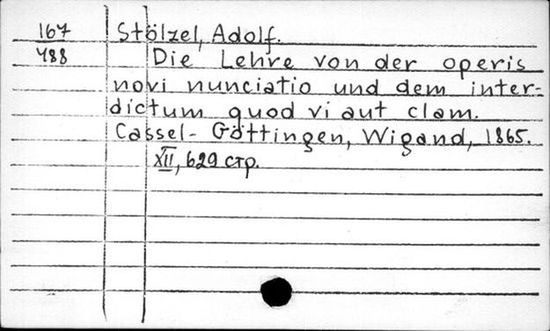 167 Stölzel, Adolf.
488 Die Lehre von der operis
novi nunciatio und dem inter-
dictum quod vi aut clam.
Cassel-Göttingen, Wigand, 1865.
XII, 629 стр.